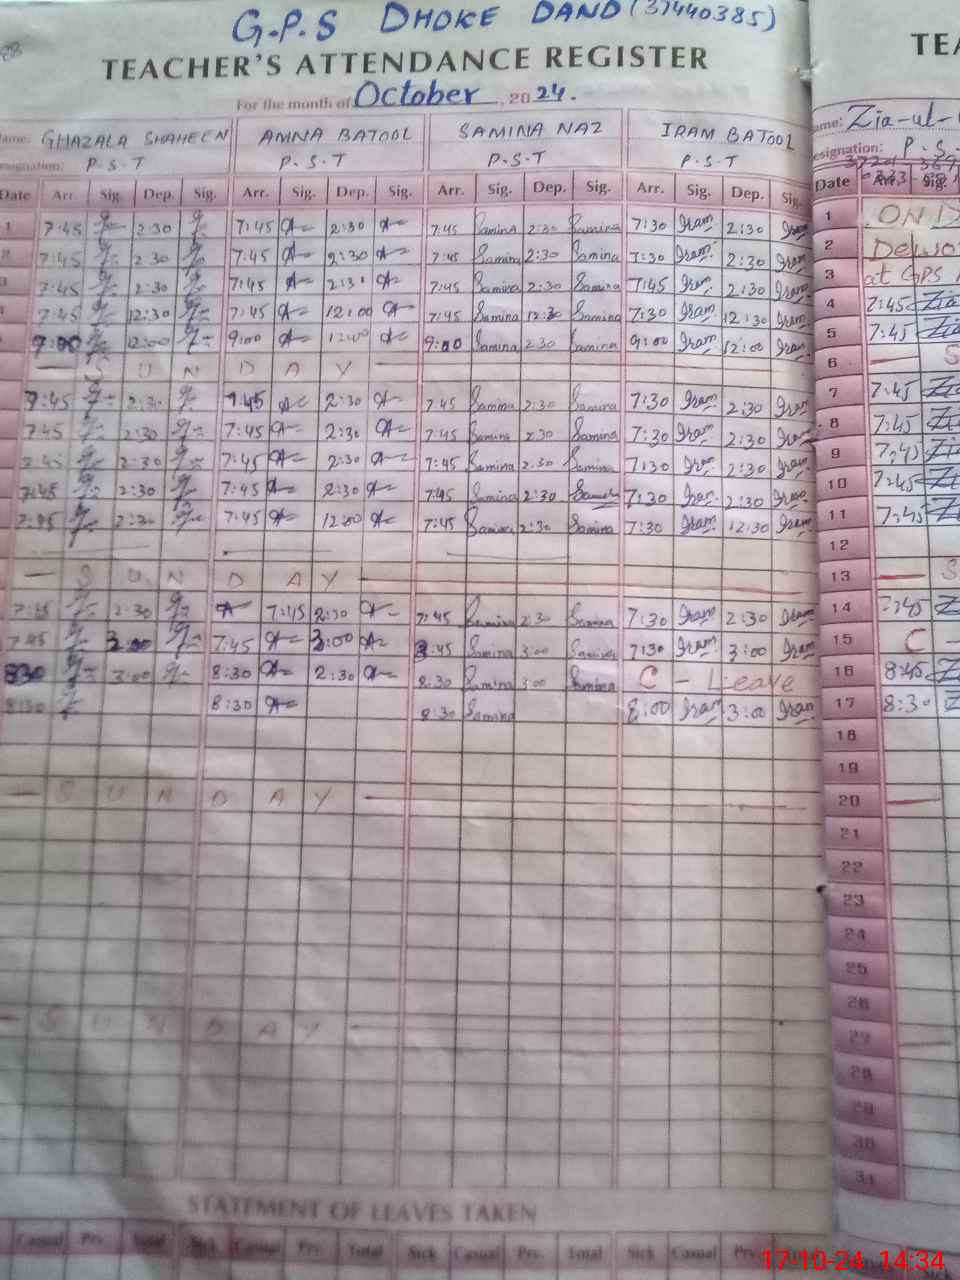 G.P.S DHOKE DAND (37440385)
TEACHER'S ATTENDANCE REGISTER
For the month of October, 2024.
GHAZALA SHAHEEN AMNA BATOOL SAMINA NAZ IRAM BATOOL
P.S.T P.S.T P.S.T P.S.T
Date Arr. Sig. Dep. Sig. Arr. Sig. Dep. Sig. Arr. Sig. Dep. Sig. Arr. Sig. Dep. Sig.
7:45 2:30 7:45 2:30 7:45 Samina 2:30 Samina 7:30 Iram 2:30 Iram
7:45 2:30 7:45 2:30 7:45 Samina 2:30 Samina 7:30 Iram 2:30 Iram
7:45 2:30 7:45 2:30 7:45 Samina 2:30 Samina 7:45 Iram 2:30 Iram
7:45 12:30 7:45 12:00 7:45 Samina 12:30 Samina 7:30 Iram 12:30 Iram
9:00 12:00 9:00 12:00 9:00 Samina 2:30 Samina 9:00 Iram 12:00 Iram
— S U N D A Y —
7:45 2:30 7:45 2:30 7:45 Samina 2:30 Samina 7:30 Iram 2:30 Iram
7:45 2:30 7:45 2:30 7:45 Samina 2:30 Samina 7:30 Iram 2:30 Iram
7:45 2:30 7:45 2:30 7:45 Samina 2:30 Samina 7:30 Iram 2:30 Iram
7:45 2:30 7:45 2:30 7:45 Samina 2:30 Samina 7:30 Iram 2:30 Iram
7:45 2:30 7:45 12:00 7:45 Samina 2:30 Samina 7:30 Iram 12:30 Iram
— S U N D A Y —
7:45 2:30 7:45 2:30 7:45 Samina 2:30 Samina 7:30 Iram 2:30 Iram
7:45 3:00 7:45 3:00 Samina 3:00 Samina 7:30 Iram 3:00 Iram
830 3:00 8:30 2:30 8:30 Samina 3:00 Samina C - Leave
8:30 8:30 8:30 Samina 8:00 Iram 3:00 Iram
— S U N D A Y —
— S U N D A Y —
STATEMENT OF LEAVES TAKEN
Casual Prv. Total Sick Casual Prv. Total Sick Casual Prv. Total Sick Casual Prv.
TEA
Zia-ul-
P.S.
Date Arr. Sig.
1
2
3 at GPS
4 7:45 Zia
5 7:45 Zia
6 — S
7 7:45
8 7:45
9 7:45
10 7:45
11 7:45
12
13 — S
14 7:45
15 C -
16 8:45
17 8:30
18
19
20 —
21
22
23
24
25
26
27
28
29
30
31
17-10-24 14:34